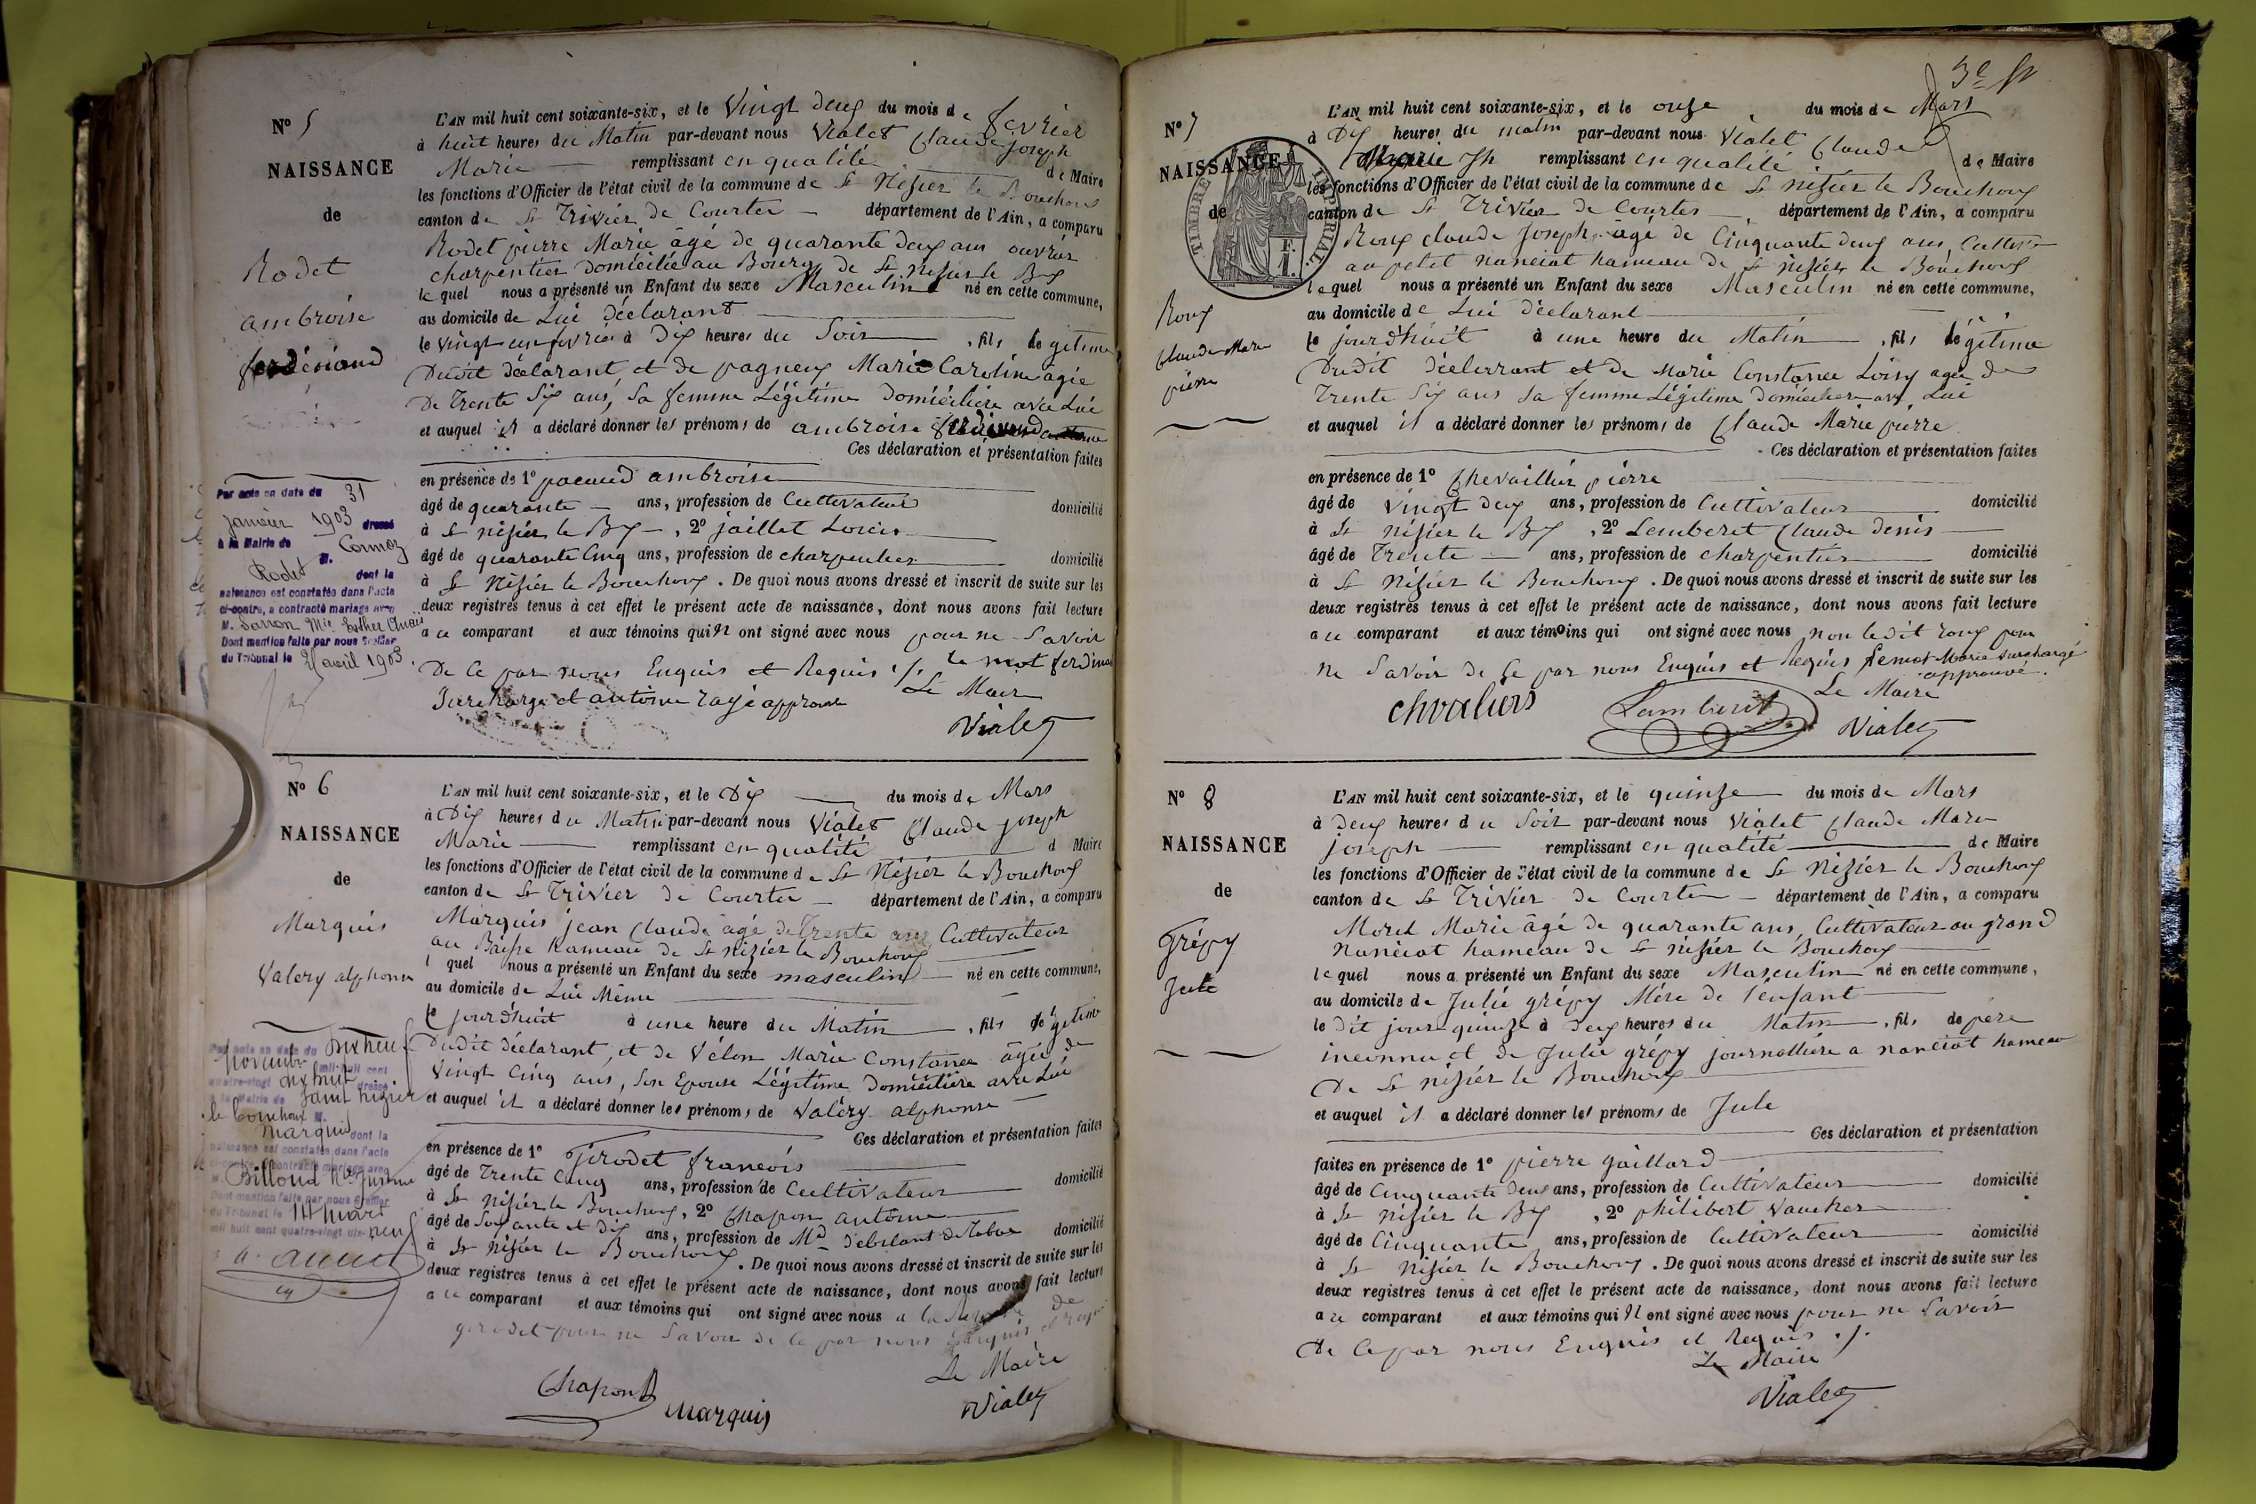 N° 5
NAISSANCE
de
Rodet
ambroise
ferdinand
L'AN mil huit cent soixante-six, et le Vingt deux du mois de fevrier
à huit heures du Matin par-devant nous Vialet Claude joseph
Marie remplissant en qualité de Maire
les fonctions d'Officier de l'état civil de la commune de St Nizier le Bouchoux
canton de St Trivier de Courtes département de l'Ain, a comparu
Rodet pierre Marie âgé de quarante deux ans ouvrier
charpentier domicilié au Bourg de St nizier le Bx
lequel nous a présenté un Enfant du sexe Masculin né en cette commune,
au domicile de Lui déclarant
le vingt un fevrier à Dix heures du Soir, fils légitime
Dudit déclarant et de pagneux Marie Caroline agée
De trente Six ans, Sa femme Légitime domiciliée avec Lui
et auquel il a déclaré donner les prénoms de ambroise ferdinand antoine
Ces déclaration et présentation faites
en présence de 1° pacaud ambroise
âgé de quarante ans, profession de Cultivateur domicilié
à St nizier le Bx, 2° jaillet Louis
âgé de quarante Cinq ans, profession de charpentier domicilié
à St Nizier le Bouchoux. De quoi nous avons dressé et inscrit de suite sur les
deux registres tenus à cet effet le présent acte de naissance, dont nous avons fait lecture
a ce comparant et aux témoins qui N ont signé avec nous pour ne Savoir
De Ce par nous Enquis et Requis ./. le mot ferdinand
Surchargé et antoine rayé approuvé
Le Maire
Vialet
Par acte en date du 31
janvier 1903 dressé
à la Mairie de Cormoz
M. Rodet dont la
naissance est constatée dans l'acte
ci-contre, a contracté mariage avec
M. Sarron Mie Esther Anaïs
Dont mention faite par nous Greffier
du Tribunal le 21 avril 1903
N° 6
NAISSANCE
de
Marquis
Valery alphonse
L'AN mil huit cent soixante-six, et le Dix du mois de Mars
à Dix heures du Matin par-devant nous Vialet Claude joseph
Marie remplissant en qualité d Maire
les fonctions d'Officier de l'état civil de la commune de St Nizier le Bouchoux
canton de St Trivier de Courtes département de l'Ain, a comparu
Marquis jean Claude âgé de Trente ans Cultivateur
au hameau de St nizier le Bouchoux
l quel nous a présenté un Enfant du sexe masculin né en cette commune,
au domicile de Lui Même
le jourd'huit à une heure du Matin, fils légitime
Dudit déclarant, et de Vélon Marie Constance âgée de
Vingt Cinq ans, Son Epouse Légitime domiciliée avec Lui
et auquel il a déclaré donner les prénoms de Valéry alphonse
Ces déclaration et présentation faites
en présence de 1° Girodet francois
âgé de Trente Cinq ans, profession de Cultivateur domicilié
à St nizier le Bouchoux, 2° Chapon antoine
âgé de Soixante et Dix ans, profession de Md débitant de Tabac domicilié
à St Nizier le Bouchoux. De quoi nous avons dressé et inscrit de suite sur les
deux registres tenus à cet effet le présent acte de naissance, dont nous avons fait lecture
a ce comparant et aux témoins qui ont signé avec nous a la de
girodet pour ne Savoir de Ce par nous enquis et requis
Le Maire
Chapon
Marquis
Vialet
Par acte en date du dix neuf
Novembre mil huit cent
quatre-vingt dix huit dressé
à la Mairie de Saint Nizier
le Bouchoux M.
Marquis dont la
naissance est constatée dans l'acte
ci-contre, a contracté mariage avec
M. Billoud Justine
Dont mention faite par nous greffier
du Tribunal le 14 mars
mil huit cent quatre-vingt dix-neuf
3e ft
N° 7
NAISSANCE
de
Roux
Claude Marie
pierre
TIMBRE IMPÉRIAL
L'AN mil huit cent soixante-six, et le onze du mois de Mars
à Dix heures du matin par-devant nous Vialet Claude
Marie Jh remplissant en qualité de Maire
les fonctions d'Officier de l'état civil de la commune de St nizier le Bouchoux
canton de St Trivier de Courtes, département de l'Ain, a comparu
Roux claude Joseph agé de Cinquante deux ans Cultivr
au petit nanciat hameau de St nizier le Bouchoux
lequel nous a présenté un Enfant du sexe Masculin né en cette commune,
au domicile de Lui déclarant
le jourd'huit à une heure du Matin, fils légitime
Dudit déclarrant et de Marie Constance Loisy agée de
Trente Six ans Sa femme Légitime domiciliée avec Lui
et auquel il a déclaré donner les prénoms de Claude Marie pierre
Ces déclaration et présentation faites
en présence de 1° Chevaillier pierre
âgé de Vingt deux ans, profession de Cultivateur domicilié
à St nizier le Bx, 2° Lemberet Claude denis
âgé de Trente ans, profession de charpentier domicilié
à St Nizier le Bouchoux. De quoi nous avons dressé et inscrit de suite sur les
deux registres tenus à cet effet le présent acte de naissance, dont nous avons fait lecture
a ce comparant et aux témoins qui ont signé avec nous non le dit roux pour
ne Savoir de Ce par nous Enquis et Requis le mot Marie Surchargé
approuvé.
Le Maire
chvaliers
Lamberet
Vialet
N° 8
NAISSANCE
de
Grépy
Jule
L'AN mil huit cent soixante-six, et le quinze du mois de Mars
à Deux heures du Soir par-devant nous Vialet Claude Marie
joseph remplissant en qualité de Maire
les fonctions d'Officier de l'état civil de la commune de St Nizier le Bouchoux
canton de St Trivier de Courtes département de l'Ain, a comparu
Morel Marie âgé de quarante ans, Cultivateur au grand
Nanciat hameau de St nizier le Bouchoux
lequel nous a présenté un Enfant du sexe Masculin né en cette commune,
au domicile de Julie grépy Mére de l'enfant
le dit jour quinze à Deux heures du Matin, fils de père
inconnu et de Julie grépy journalliére a nanciat hameau
De St nizier le Bouchoux
et auquel il a déclaré donner les prénoms de Jule
Ces déclaration et présentation
faites en présence de 1° pierre gaillard
âgé de Cinquante Deux ans, profession de Cultivateur domicilié
à St nizier le Bx, 2° philibert Vaucher
âgé de Cinquante ans, profession de Cultivateur domicilié
à St Nizier le Bouchoux. De quoi nous avons dressé et inscrit de suite sur les
deux registres tenus à cet effet le présent acte de naissance, dont nous avons fait lecture
a ce comparant et aux témoins qui N ont signé avec nous pour ne Savoir
de Ce par nous Enquis et Requis ./.
Le Maire
Vialet